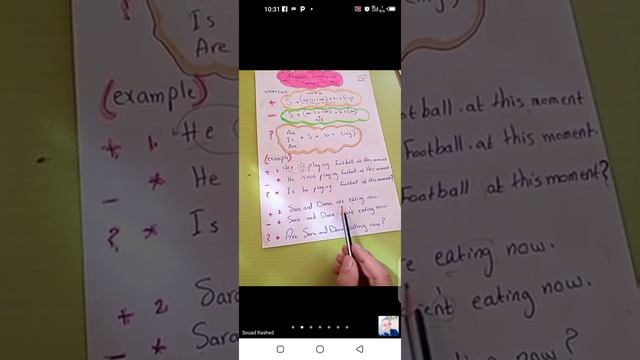 10:31
Present Continuous
Tense
+ S + (am / is / are) + v + (ing)
- S + (am / is / are) + v + (ing)
not
? Am
Is + S + v + (ing)
Are
(example)
+ 1. He is playing Football at this moment
- * He is not playing Football at this moment
? * Is he playing Football at this moment?
+ 2 Sara and Dana are eating now.
- * Sara and Dana eating now.
? * Are Sara and Dana eating now?
Souad Rashed
Is
Are
(example)
+ 1. He
- * He
? * Is
+ 2 Sara
- * Sara
football. at this moment
Football. at this moment
Football at this moment?
eating now.
eating now.
now?